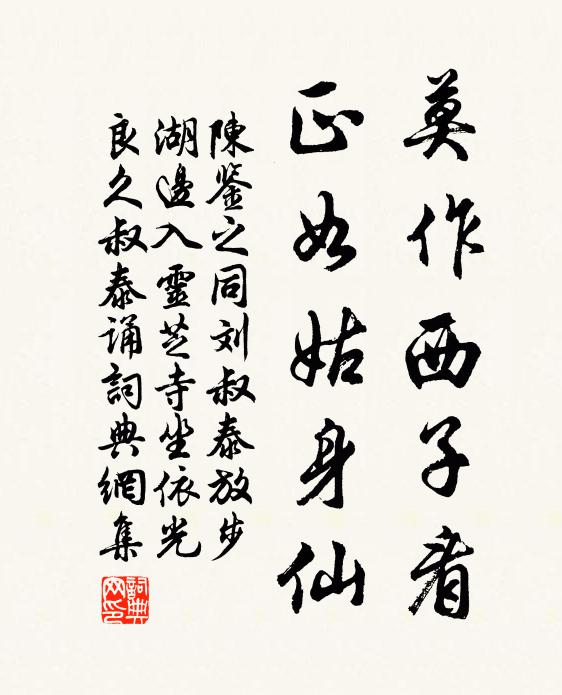 莫作西子看
正如姑身仙
陳鉴之同刘叔泰放步
湖邊入靈芝寺坐依光
良久叔泰誦詞典網集
詞典網印